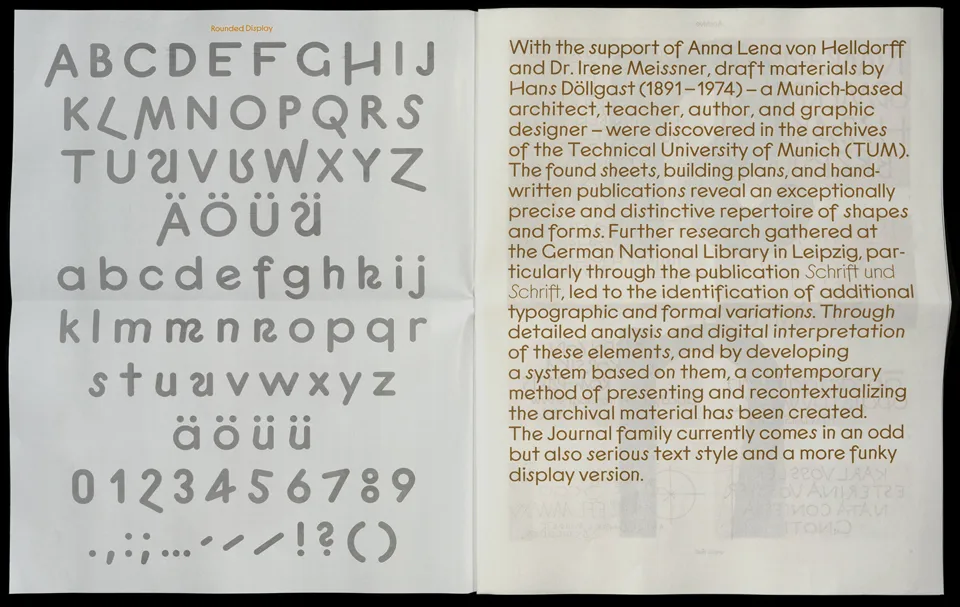 Rounded Display
ABCDEFGHIJ
KLMNOPQRS
TUUVUWXYZ
ÄÖÜÜ
abcdefghhij
klmmnnopqr
stuuvwxyz
äöüü
0123456789
.,:;...-–/!?()
With the support of Anna Lena von Helldorff
and Dr. Irene Meissner, draft materials by
Hans Döllgast (1891–1974) – a Munich-based
architect, teacher, author, and graphic
designer – were discovered in the archives
of the Technical University of Munich (TUM).
The found sheets, building plans, and hand-
written publications reveal an exceptionally
precise and distinctive repertoire of shapes
and forms. Further research gathered at
the German National Library in Leipzig, par-
ticularly through the publication Schrift und
Schrift, led to the identification of additional
typographic and formal variations. Through
detailed analysis and digital interpretation
of these elements, and by developing
a system based on them, a contemporary
method of presenting and recontextualizing
the archival material has been created.
The Journal family currently comes in an odd
but also serious text style and a more funky
display version.